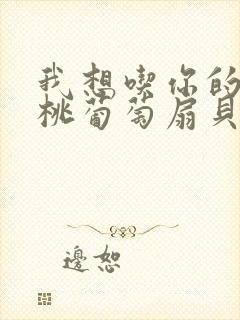 我想喫你的
桃葡萄扇貝
邊恕